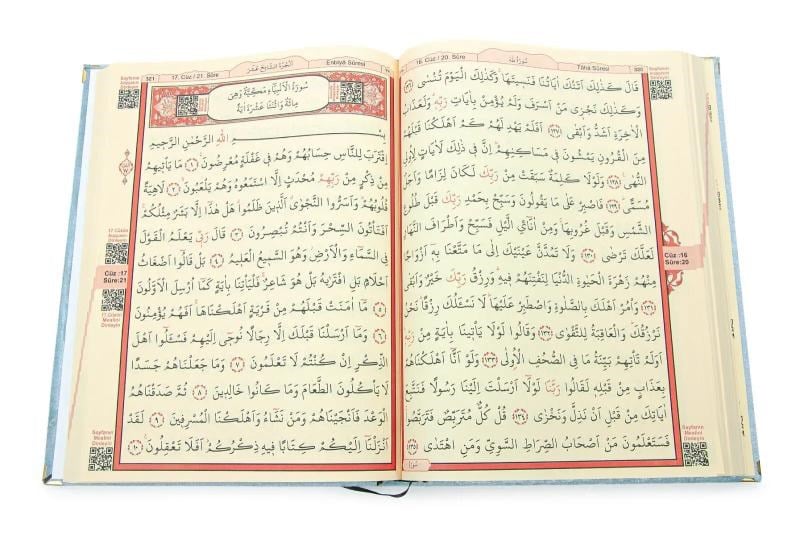 16. Cüz / 20. Sûre
سُورَةُ طٰهٰ
Tâhâ Sûresi
320
قَالَ كَذٰلِكَ اَتَتْكَ اٰيَاتُنَا فَنَسِيتَهَا وَكَذٰلِكَ الْيَوْمَ تُنْسٰى ﴿١٢٦﴾
وَكَذٰلِكَ نَجْزِي مَنْ اَسْرَفَ وَلَمْ يُؤْمِنْ بِاٰيَاتِ رَبِّهِ وَلَعَذَابُ
الْاٰخِرَةِ اَشَدُّ وَاَبْقٰى ﴿١٢٧﴾ اَفَلَمْ يَهْدِ لَهُمْ كَمْ اَهْلَكْنَا قَبْلَهُمْ
مِنَ الْقُرُونِ يَمْشُونَ فِي مَسَاكِنِهِمْ اِنَّ فِي ذٰلِكَ لَاٰيَاتٍ لِاُولِي
النُّهٰى ﴿١٢٨﴾ وَلَوْلَا كَلِمَةٌ سَبَقَتْ مِنْ رَبِّكَ لَكَانَ لِزَامًا وَاَجَلٌ
مُسَمًّى ﴿١٢٩﴾ فَاصْبِرْ عَلٰى مَا يَقُولُونَ وَسَبِّحْ بِحَمْدِ رَبِّكَ قَبْلَ طُلُوعِ
الشَّمْسِ وَقَبْلَ غُرُوبِهَا وَمِنْ اٰنَٓائِ الَّيْلِ فَسَبِّحْ وَاَطْرَافَ النَّهَارِ
لَعَلَّكَ تَرْضٰى ﴿١٣٠﴾ وَلَا تَمُدَّنَّ عَيْنَيْكَ اِلٰى مَا مَتَّعْنَا بِهِ اَزْوَاجًا
مِنْهُمْ زَهْرَةَ الْحَيٰوةِ الدُّنْيَا لِنَفْتِنَهُمْ فِيهِ وَرِزْقُ رَبِّكَ خَيْرٌ وَاَبْقٰى
﴿١٣١﴾ وَأْمُرْ اَهْلَكَ بِالصَّلٰوةِ وَاصْطَبِرْ عَلَيْهَا لَا نَسْـَٔلُكَ رِزْقًا نَحْنُ
نَرْزُقُكَ وَالْعَاقِبَةُ لِلتَّقْوٰى ﴿١٣٢﴾ وَقَالُوا لَوْلَا يَأْتِينَا بِاٰيَةٍ مِنْ رَبِّهِ
اَوَلَمْ تَأْتِهِمْ بَيِّنَةُ مَا فِي الصُّحُفِ الْاُولٰى ﴿١٣٣﴾ وَلَوْ اَنَّٓا اَهْلَكْنَاهُمْ
بِعَذَابٍ مِنْ قَبْلِهِ لَقَالُوا رَبَّنَا لَوْلَٓا اَرْسَلْتَ اِلَيْنَا رَسُولًا فَنَتَّبِعَ
اٰيَاتِكَ مِنْ قَبْلِ اَنْ نَذِلَّ وَنَخْزٰى ﴿١٣٤﴾ قُلْ كُلٌّ مُتَرَبِّصٌ فَتَرَبَّصُوا
فَسَتَعْلَمُونَ مَنْ اَصْحَابُ الصِّرَاطِ السَّوِيِّ وَمَنِ اهْتَدٰى ﴿١٣٥﴾
Cüz :16
Sûre:20
Sayfanın
Mealini
Dinleyin
321
17. Cüz / 21. Sûre
اَلْجُزْءُ السَّابِعَ عَشَرَ
Enbiyâ Sûresi
سُورَةُ الْاَنْبِيَٓاءِ مَكِّيَّةٌ وَهِيَ
مِائَةٌ وَاثْنَتَا عَشْرَةَ اٰيَةً
بِسْمِ اللّٰهِ الرَّحْمٰنِ الرَّحِيمِ
اِقْتَرَبَ لِلنَّاسِ حِسَابُهُمْ وَهُمْ فِي غَفْلَةٍ مُعْرِضُونَ ﴿١﴾ مَا يَأْتِيهِمْ
مِنْ ذِكْرٍ مِنْ رَبِّهِمْ مُحْدَثٍ اِلَّا اسْتَمَعُوهُ وَهُمْ يَلْعَبُونَ ﴿٢﴾ لَاهِيَةً
قُلُوبُهُمْ وَاَسَرُّوا النَّجْوَى الَّذِينَ ظَلَمُوا هَلْ هٰذَٓا اِلَّا بَشَرٌ مِثْلُكُمْ
اَفَتَأْتُونَ السِّحْرَ وَاَنْتُمْ تُبْصِرُونَ ﴿٣﴾ قَالَ رَبِّي يَعْلَمُ الْقَوْلَ
فِي السَّمَٓاءِ وَالْاَرْضِ وَهُوَ السَّمِيعُ الْعَلِيمُ ﴿٤﴾ بَلْ قَالُٓوا اَضْغَاثُ
اَحْلَامٍ بَلِ افْتَرٰيهُ بَلْ هُوَ شَاعِرٌ فَلْيَأْتِنَا بِاٰيَةٍ كَمَٓا اُرْسِلَ الْاَوَّلُونَ
﴿٥﴾ مَٓا اٰمَنَتْ قَبْلَهُمْ مِنْ قَرْيَةٍ اَهْلَكْنَاهَا اَفَهُمْ يُؤْمِنُونَ
﴿٦﴾ وَمَٓا اَرْسَلْنَا قَبْلَكَ اِلَّا رِجَالًا نُوحِٓي اِلَيْهِمْ فَسْـَٔلُٓوا اَهْلَ
الذِّكْرِ اِنْ كُنْتُمْ لَا تَعْلَمُونَ ﴿٧﴾ وَمَا جَعَلْنَاهُمْ جَسَدًا
لَا يَأْكُلُونَ الطَّعَامَ وَمَا كَانُوا خَالِدِينَ ﴿٨﴾ ثُمَّ صَدَقْنَاهُمُ
الْوَعْدَ فَاَنْجَيْنَاهُمْ وَمَنْ نَشَٓاءُ وَاَهْلَكْنَا الْمُسْرِفِينَ ﴿٩﴾ لَقَدْ
اَنْزَلْنَٓا اِلَيْكُمْ كِتَابًا فِيهِ ذِكْرُكُمْ اَفَلَا تَعْقِلُونَ ﴿١٠﴾
Sayfanın
Arapçasını
Dinleyin
17.Cüzün
Arapçasını
Dinleyin
Cüz :17
Sûre:21
17.Cüzün
Mealini
Dinleyin
Sayfanın
Mealini
Dinleyin